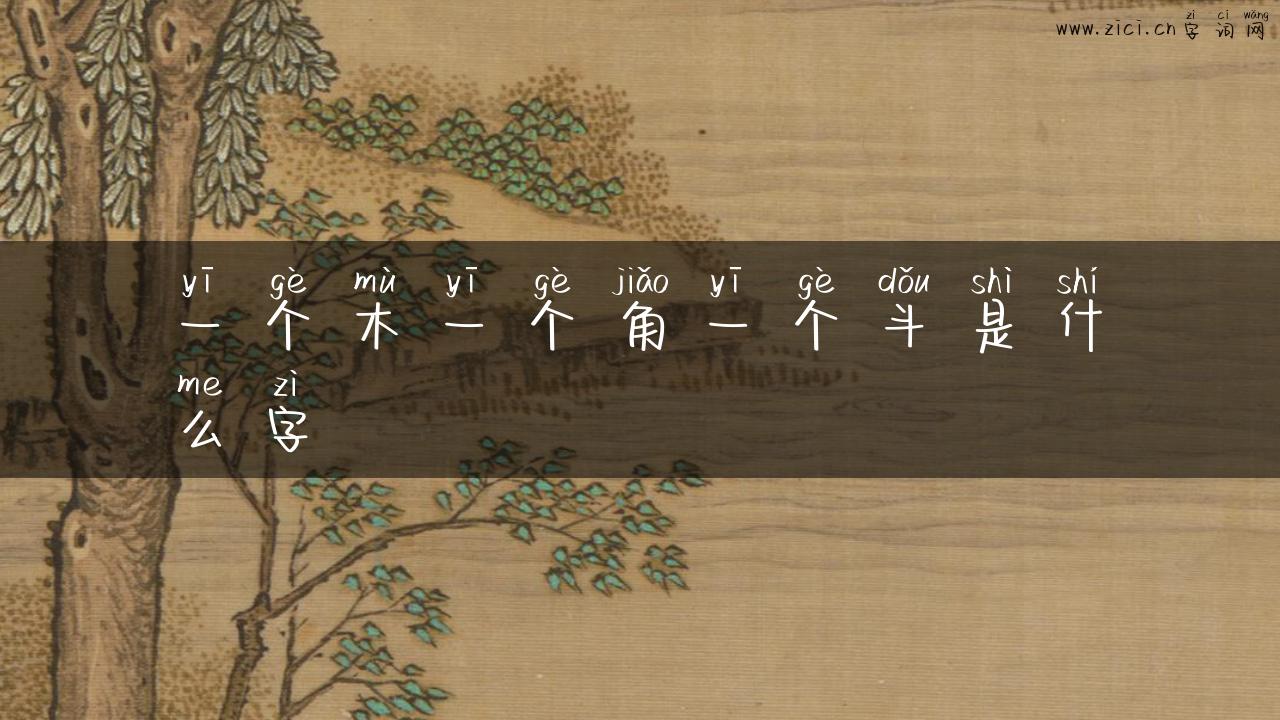 zì cí wǎng
www.zici.cn 字词网
yī gè mù yī gè jiǎo yī gè dǒu shì shí
一个木一个角一个斗是什
me zì
么字